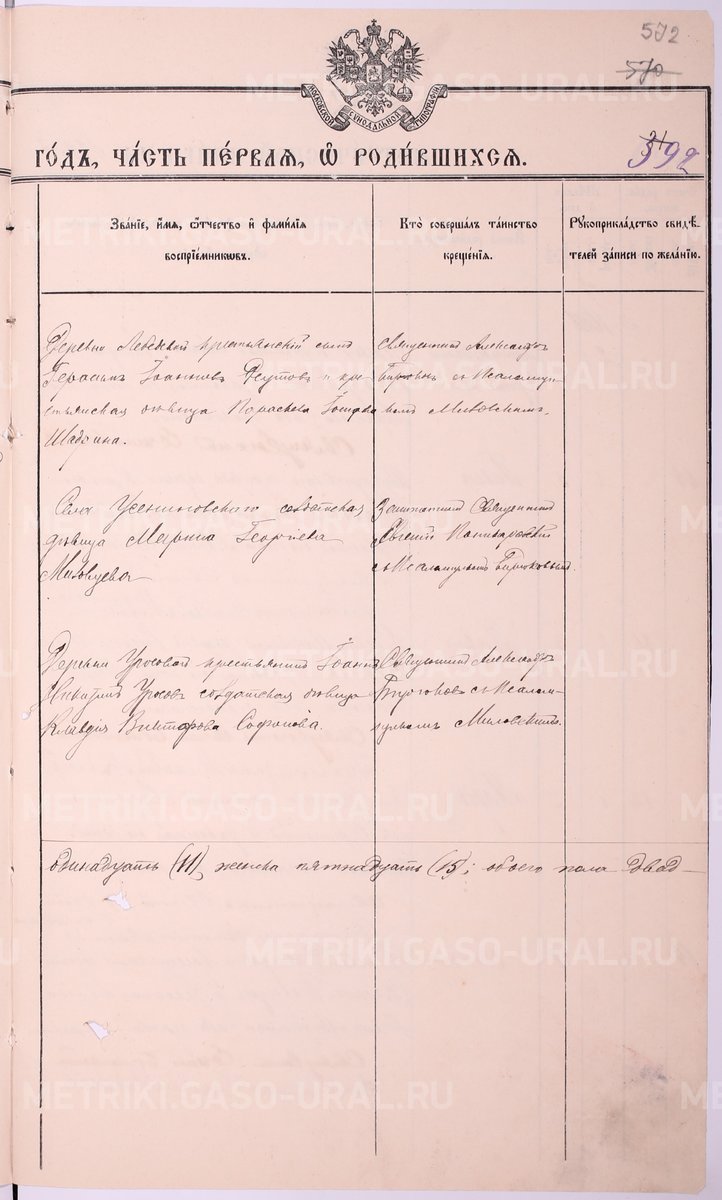 572
570
592
МОСКОВСКОЙ СѴНОДАЛЬНОЙ ТИПОГРАФІИ
ГО́ДЪ, ЧА́СТЬ ПЕ́РВАЯ, Ѡ҆ РОДИ́ВШИХСЯ.
Зва́ніе, и҆́мя, ѻ҆́тчество и҆ фами́лія
воспріе́мникωвъ.
Кто̀ соверша́лъ та́инство
креще́нія.
Рꙋкоприкла́дство свидѣ́-
телей за́писи по жела́нію.
Деревни Лебедевой крестьянскій сынъ
Герасимъ Іоанновъ и кре-
стьянская дѣвица Параскева
Шадрина.
Священникъ Александръ
съ псаломщи-
комъ Миловскимъ.
Села солдатская
дѣвица Марина Георгіева
Заштатный Священникъ
Евгеній
съ псаломщ.
Деревни Уросовой крестьянинъ Іоаннъ
Никитинъ Уросовъ солдатская дѣвица
Клавдія Викторова Софонова.
Священникъ Александръ
съ псалом-
щикомъ Миловскимъ.
одинадцать (11), женска пятнадцать (15); обоего пола двад-
METRIKI.GASO-URAL.RU